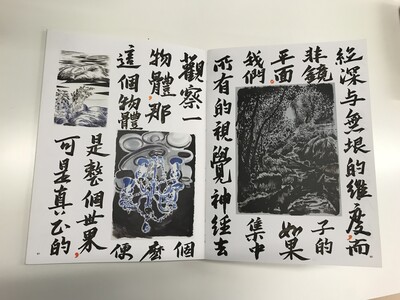 纵深与無垠的維度而
非鏡子的
平面如果
我們集中
所有的視覺神经去
觀察一個
物體那麼
這個物體便
是整個世界
可是真正的